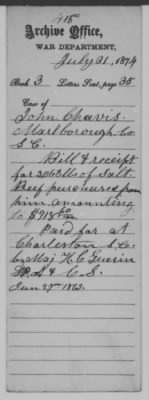 415
Archive Office,
WAR DEPARTMENT,
July 31, 1874
Book 3 Letters Sent, page 35
Case of
John Chavis
Marlborough Co.
S.C.
Bill & receipt
for 3063 lbs of Salt
Beef purchased from
him amounting
to $918 90/100
Paid for at
Charleston S.C.
by Maj H C Guerin
& C.S.
Jan 27" 1863.